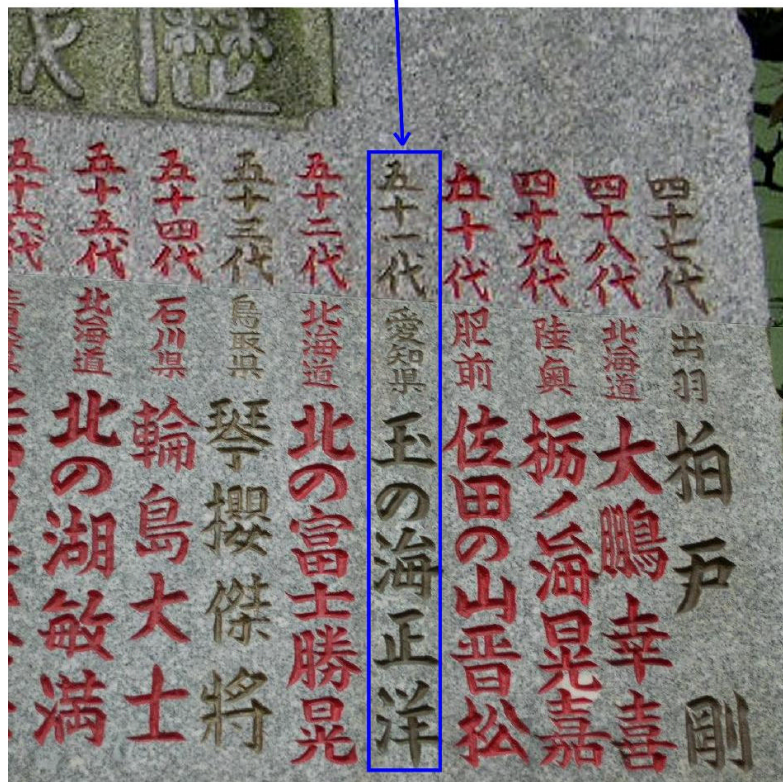 歴
四十七代 出羽 柏戸 剛
四十八代 北海道 大鵬幸喜
四十九代 陸奥 栃ノ海晃嘉
五十代 肥前 佐田の山晋松
五十一代 愛知県 玉の海正洋
五十二代 北海道 北の富士勝晃
五十三代 鳥取県 琴櫻傑將
五十四代 石川県 輪島大士
五十五代 北海道 北の湖敏満
五十六代